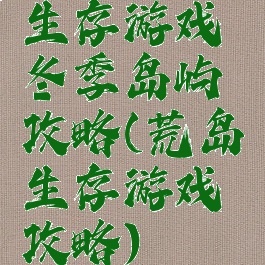 生存游戏
冬季岛屿
攻略(荒岛
生存游戏
攻略)